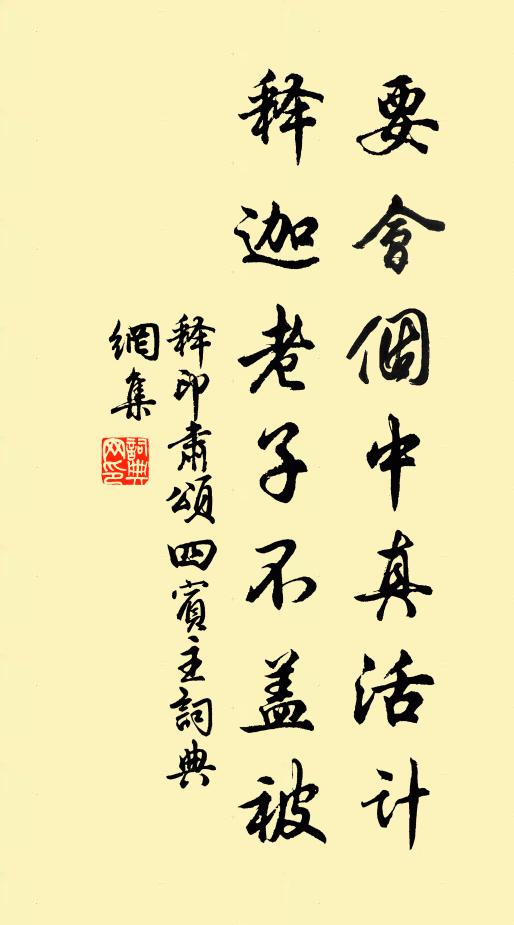 要會個中真活计
释迦老子不盖被
释印肅頌四賓主詞典
網集
詞典
网印